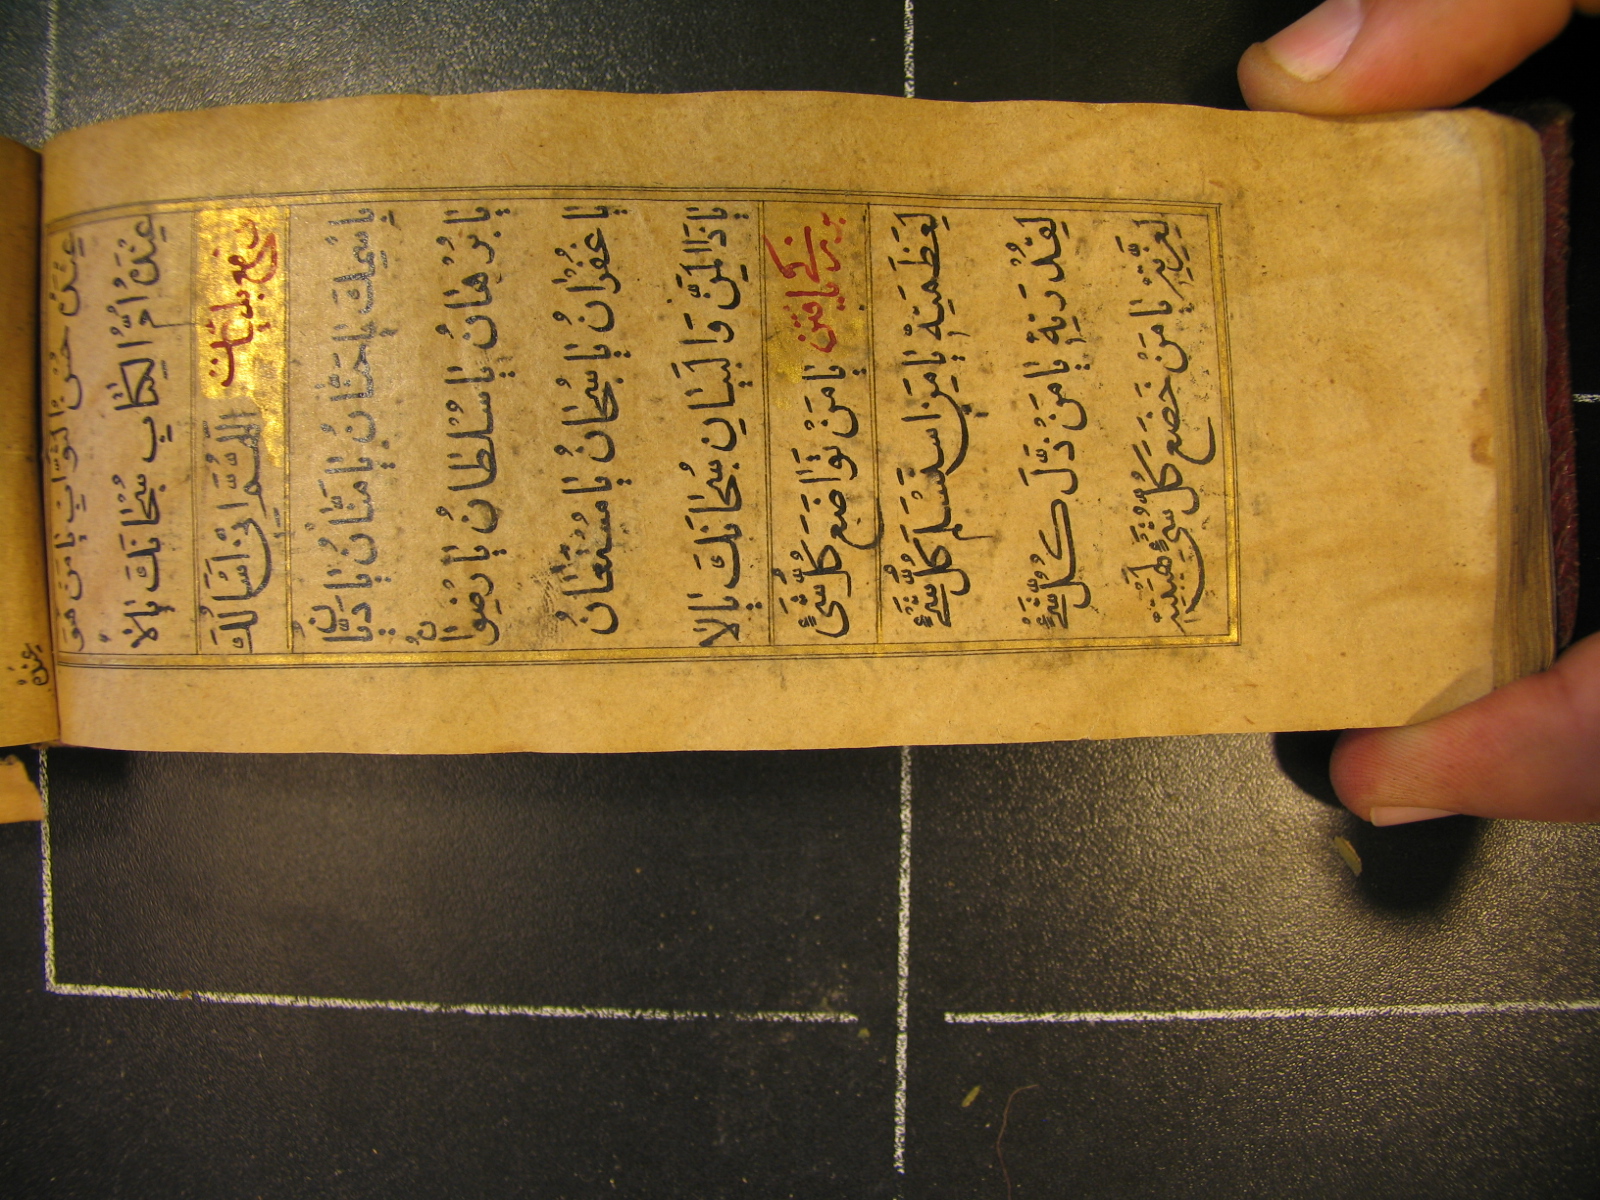 عِنْدَهُ حُسْنُ الثَّوَابِ يَا مَنْ هُوَ
عِنْدَهُ اُمُّ الْكِتَابِ سُبْحَانَكَ يَا لَا
دفع بليات اَللّٰهُمَّ اِنّٖى اَسْاَلُكَ
بِاِسْمِكَ يَا حَنَّانُ يَا مَنَّانُ يَا دَيَّانُ
يَا بُرْهَانُ يَا سُلْطَانُ يَا رِضْوَانُ
يَا غُفْرَانُ يَا سُبْحَانُ يَا مُسْتَعَانُ
يَا ذَا الْمَنِّ وَالْبَيَانِ سُبْحَانَكَ يَا لَا
يافتن يَا مَنْ تَوَاضَعَ كُلُّ شَىْءٍ
لِعَظَمَتِهِ يَا مَنِ اسْتَسْلَمَ كُلُّ شَىْءٍ
لِقُدْرَتِهِ يَا مَنْ ذَلَّ كُلُّ شَىْءٍ
لِعِزَّتِهِ يَا مَنْ خَضَعَ كُلُّ شَىْءٍ لِهَيْبَتِهِ